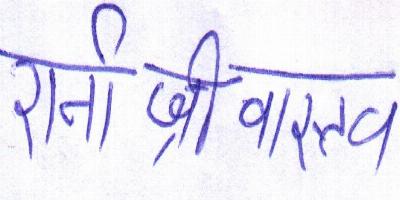 रानी श्रीवास्तव